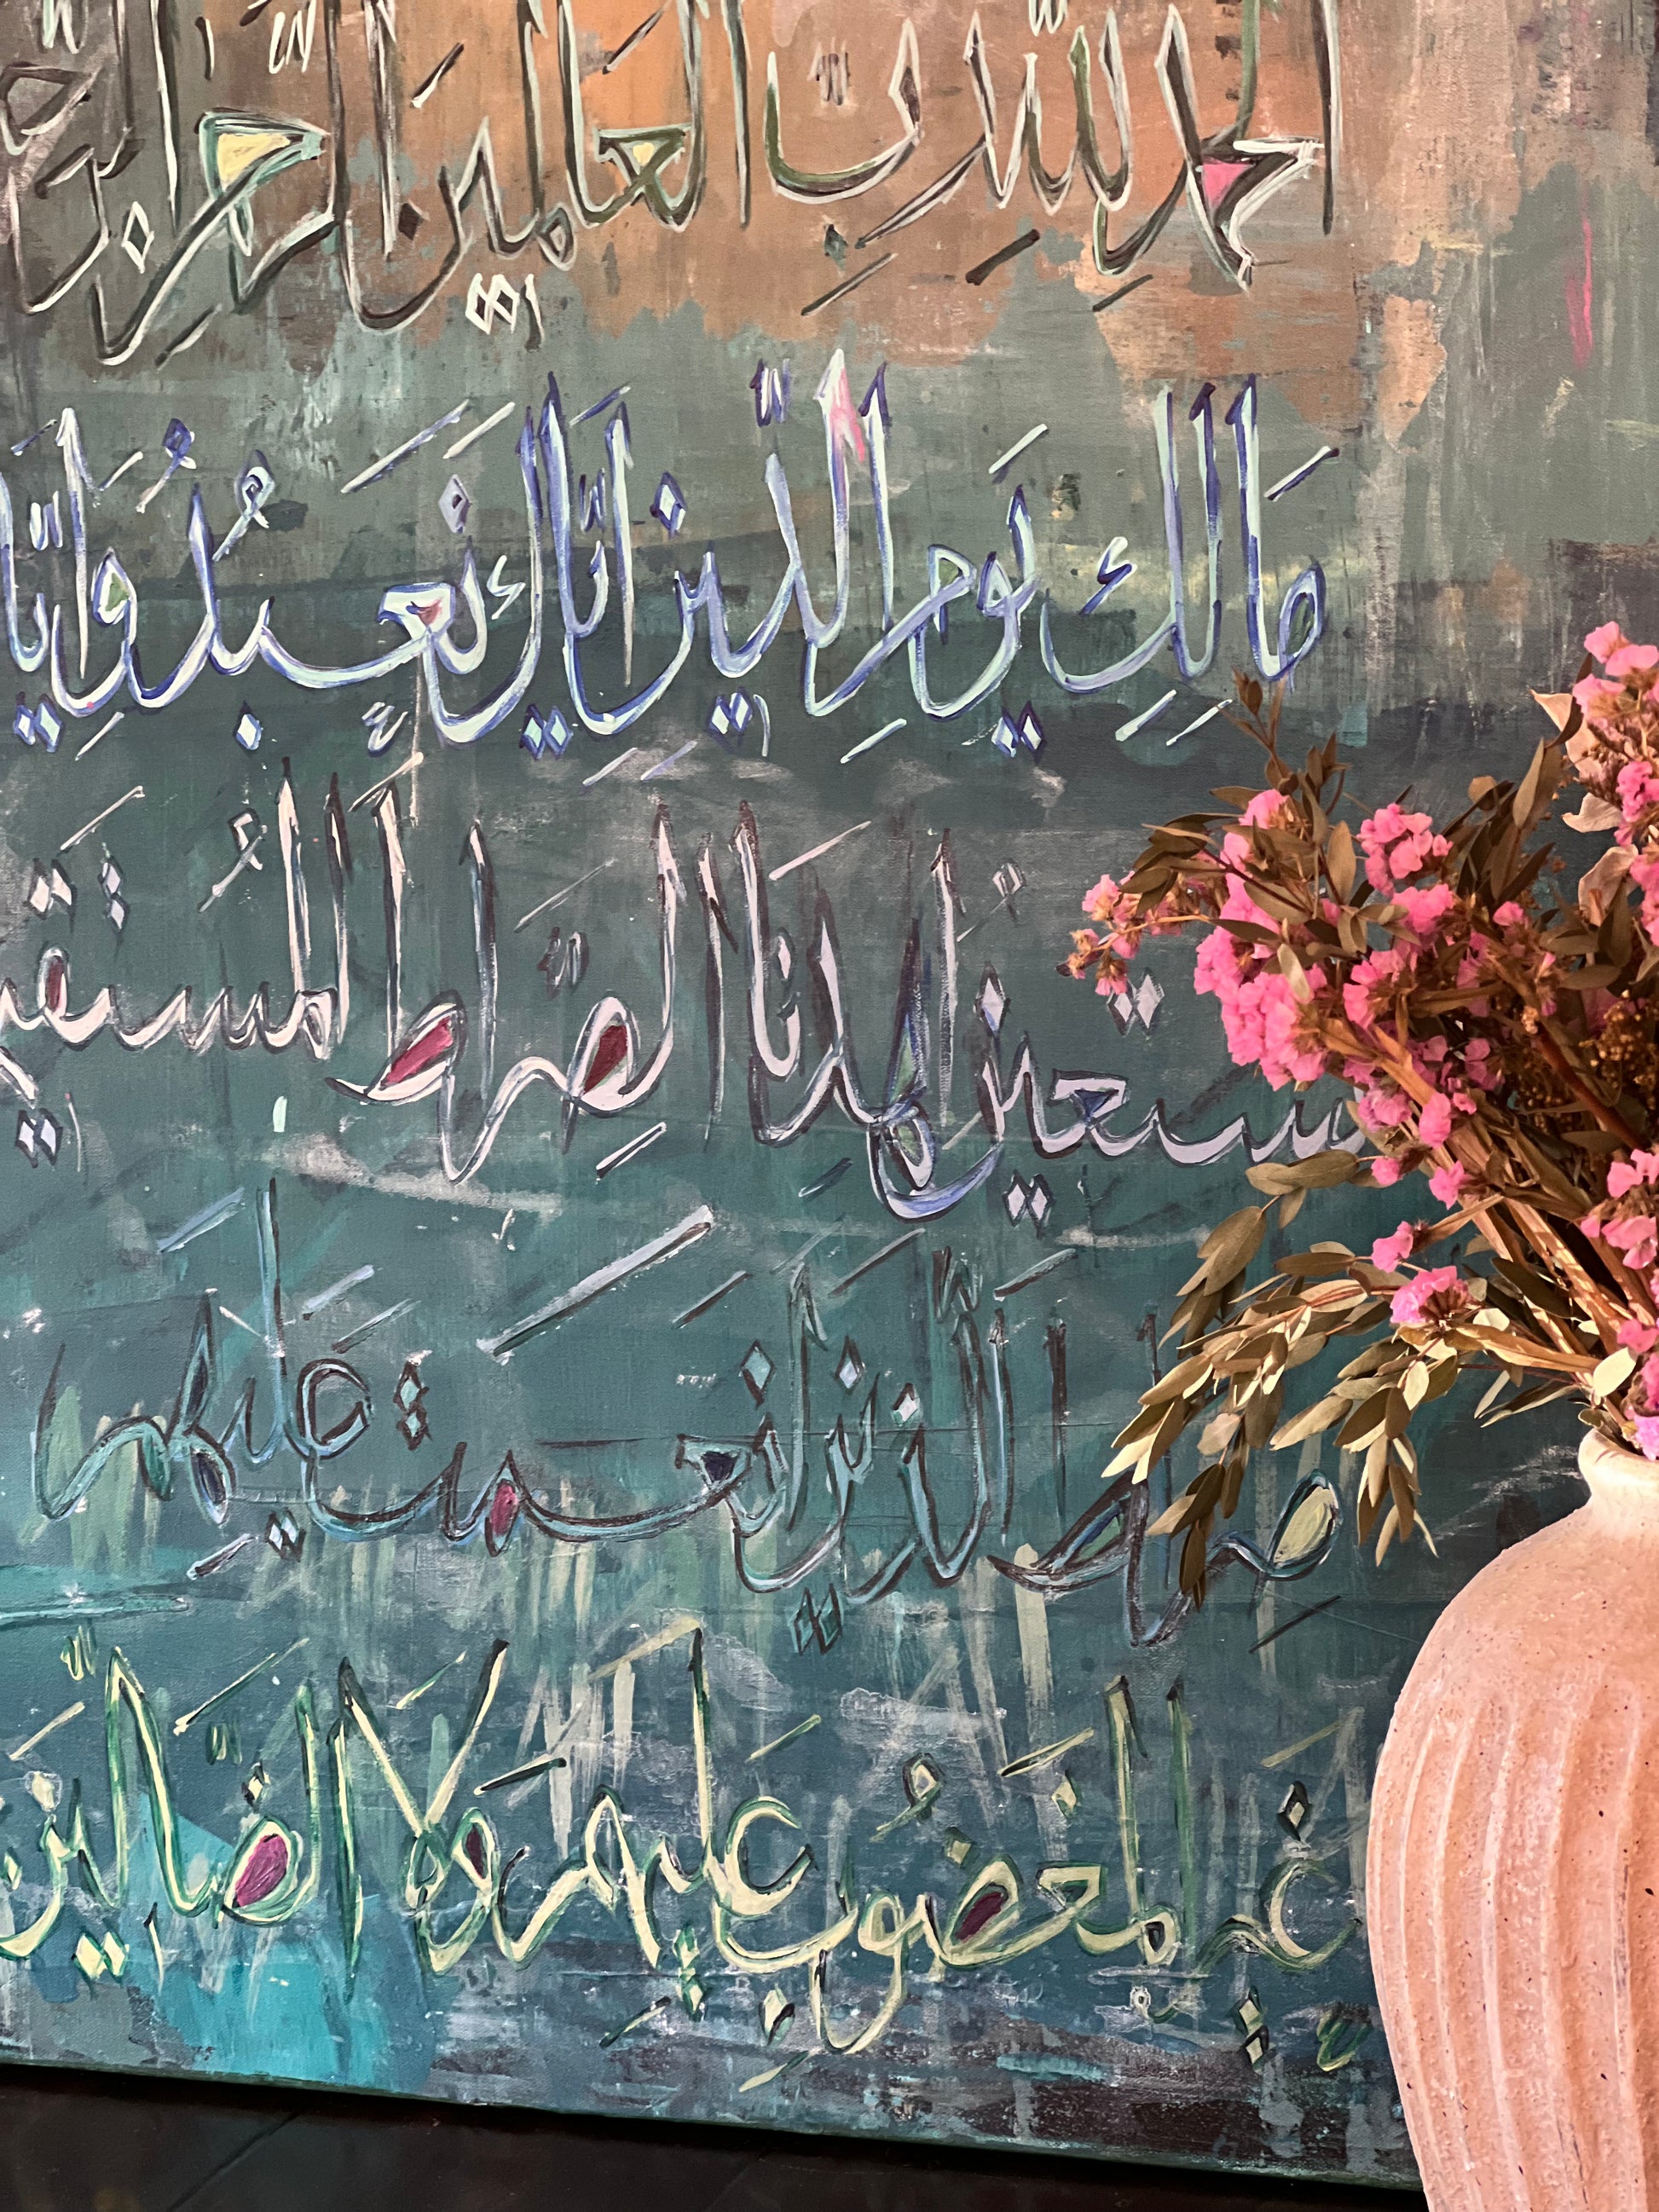 الحمد لله رب العالمين الرحمن الرح
مَالِكِ يَوْمِ الدِّينِ إِيَّاكَ نَعْبُدُ وَإِيَّا
ستعين اهدِنَا الصِّرَاطَ المُستَقي
صِراطَ الَّذينَ أَنعَمتَ عَلَيهِم
غَيرِ المَغضُوبِ عَلَيهِم وَلَا الضَّالِّينَ